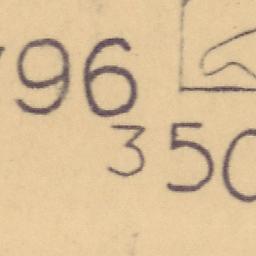 96
3 50